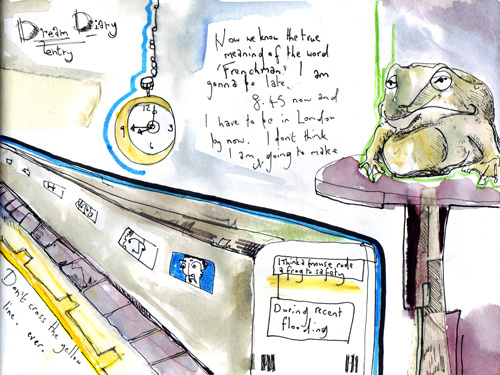 Dream Diary
entry
12
9 3
6
Now we know the true
meaning of the word
'Frenchman' I am
gonna be late.
8.45 now and
I have to be in London
by now. I dont think
I am going to make
it.
I think a mouse rode
a frog to safety
During recent
flooding
Don't cross the yellow
line. ever.